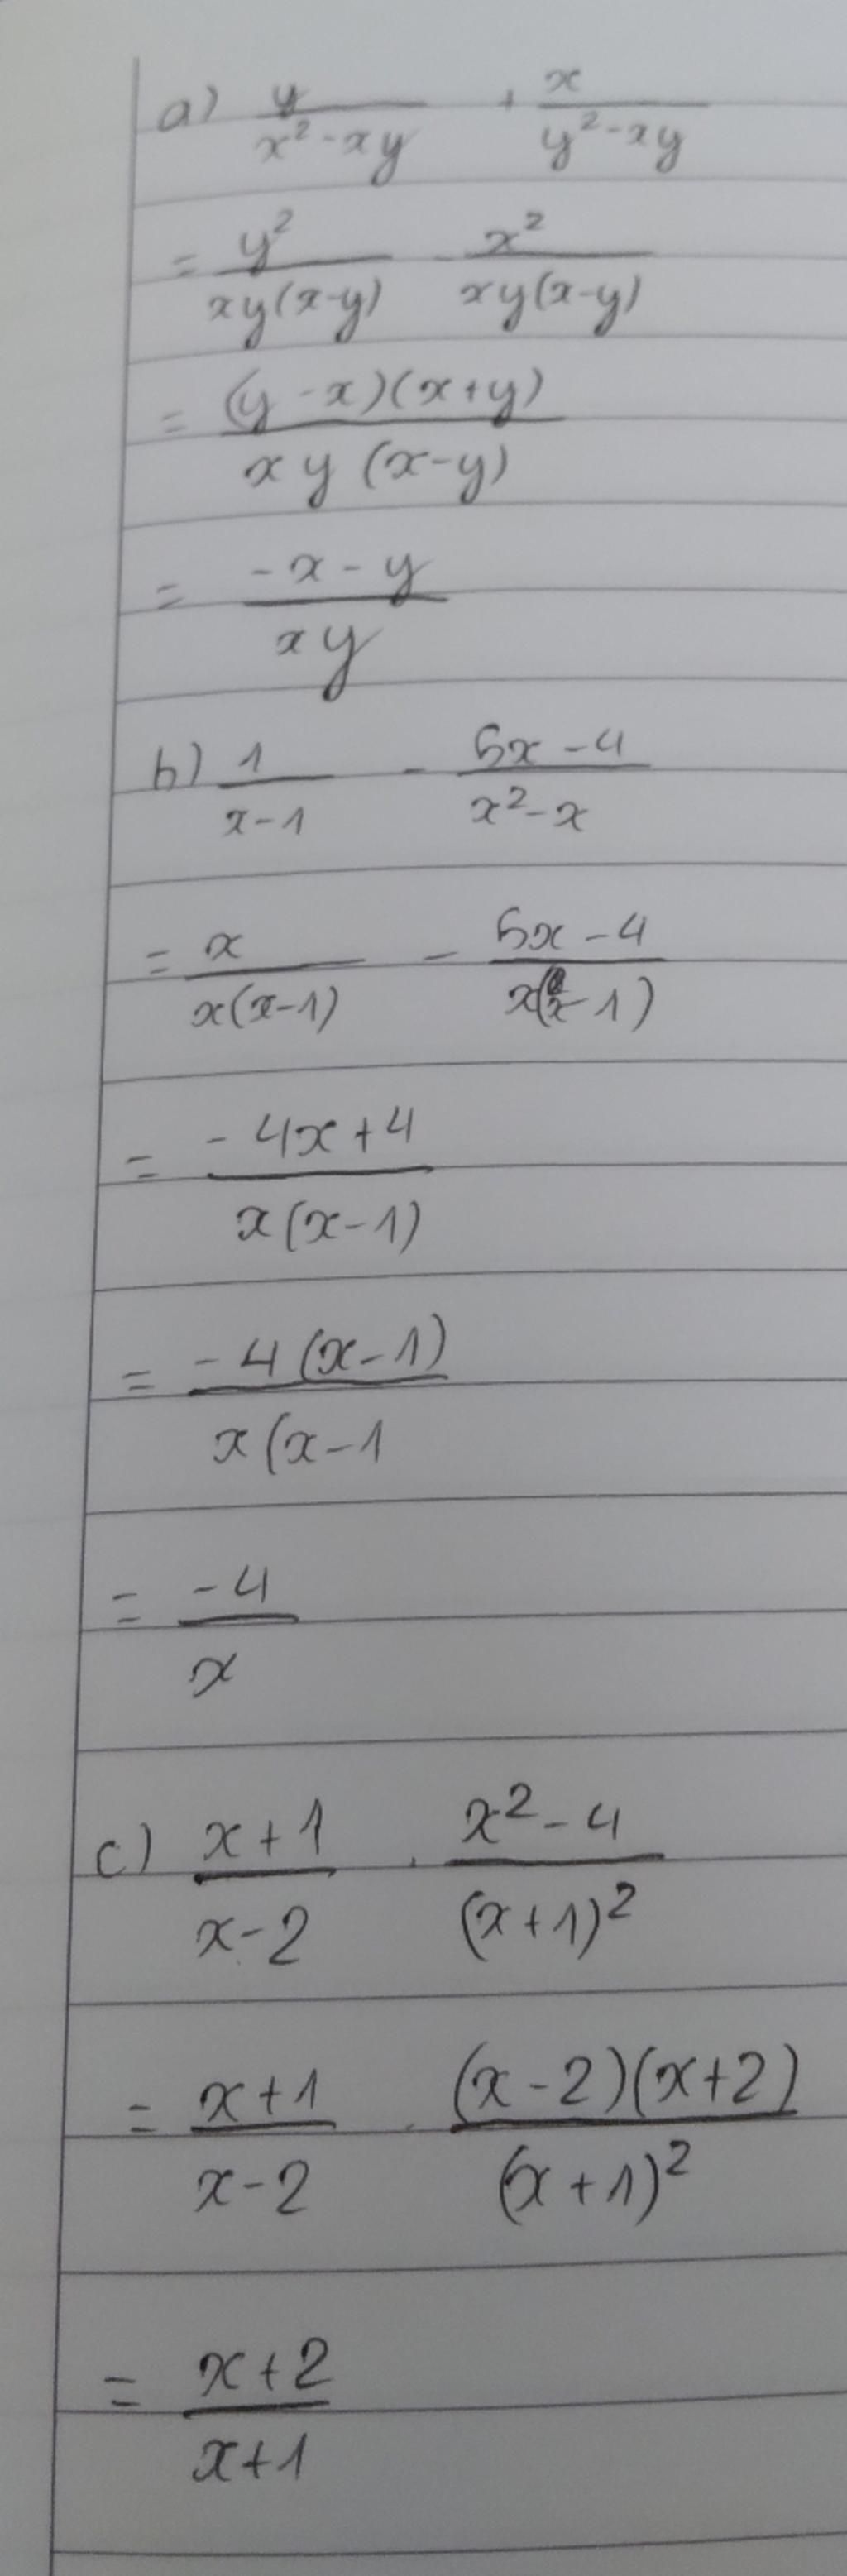 a) y/(x² - xy) + x/(y² - xy)
= y²/(xy(x-y)) - x²/(xy(x-y))
= (y - x)(x+y)/(xy (x-y))
= (-x - y)/(xy)
b) 1/(x-1) - (5x - 4)/(x² - x)
= x/(x(x-1)) - (5x - 4)/(x(x-1))
= (-4x + 4)/(x(x-1))
= -4(x-1)/(x(x-1
= -4/x
c) (x+1)/(x-2) . (x² - 4)/(x+1)²
= (x+1)/(x-2) . (x-2)(x+2)/(x+1)²
= (x+2)/(x+1)